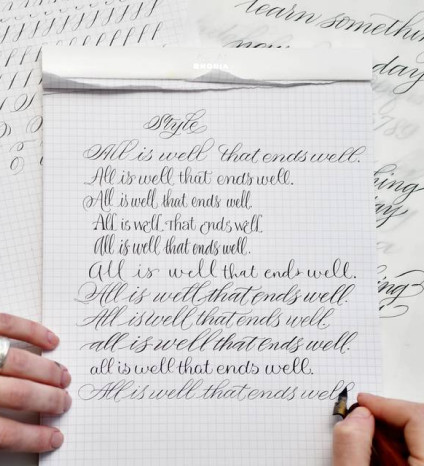 learn somethin
day
RHODIA
789
Style
All is well that ends well.
All is well that ends well.
All is well that ends well.
All is well that ends well.
All is well that ends well.
all is well that ends well.
All is well that ends well.
All is well that ends well.
all is well that ends well.
all is well that ends well.
All is well that ends well
hing
ay
hing